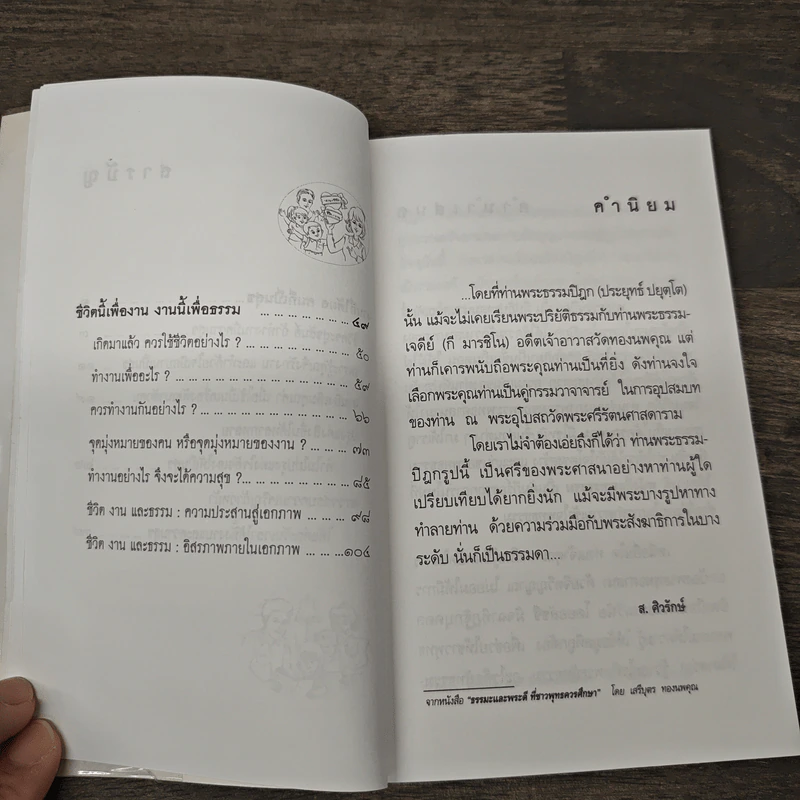 ชีวิตนี้เพื่องาน งานนี้เพื่อธรรม ... ... ... ... ๔๗
เกิดมาแล้ว ควรใช้ชีวิตอย่างไร ? ... ... ... ... ๕๐
ทำงานเพื่ออะไร ? ... ... ... ... ... ... ... ๕๗
ควรทำงานกันอย่างไร ? ... ... ... ... ... ... ๖๖
จุดมุ่งหมายของคน หรือจุดมุ่งหมายของงาน ? ... ... ๗๓
ทำงานอย่างไร จึงจะได้ความสุข ?... ... ... ... ๘๕
ชีวิต งาน และธรรม : ความประสานสู่เอกภาพ ... ... ๙๘
ชีวิต งาน และธรรม : อิสรภาพภายในเอกภาพ ... ... ...๑๐๔
คำนิยม
...โดยที่ท่านพระธรรมปิฎก (ประยุทธ์ ปยุตฺโต)
นั้น แม้จะไม่เคยเรียนพระปริยัติธรรมกับท่านพระธรรม-
เจดีย์ (กี มารชิโน) อดีตเจ้าอาวาสวัดทองนพคุณ แต่
ท่านก็เคารพนับถือพระคุณท่านเป็นที่ยิ่ง ดังท่านจงใจ
เลือกพระคุณท่านเป็นคู่กรรมวาจาจารย์ ในการอุปสมบท
ของท่าน ณ พระอุโบสถวัดพระศรีรัตนศาสดาราม
โดยเราไม่จำต้องเอ่ยถึงก็ได้ว่า ท่านพระธรรม-
ปิฎกรูปนี้ เป็นศรีของพระศาสนาอย่างหาท่านผู้ใด
เปรียบเทียบได้ยากยิ่งนัก แม้จะมีพระบางรูปหาทาง
ทำลายท่าน ด้วยความร่วมมือกับพระสังฆาธิการในบาง
ระดับ นั่นก็เป็นธรรมดา...
ส. ศิวรักษ์
จากหนังสือ "ธรรมะและพระดี ที่ชาวพุทธควรศึกษา" โดย เสรีบุตร ทองนพคุณ